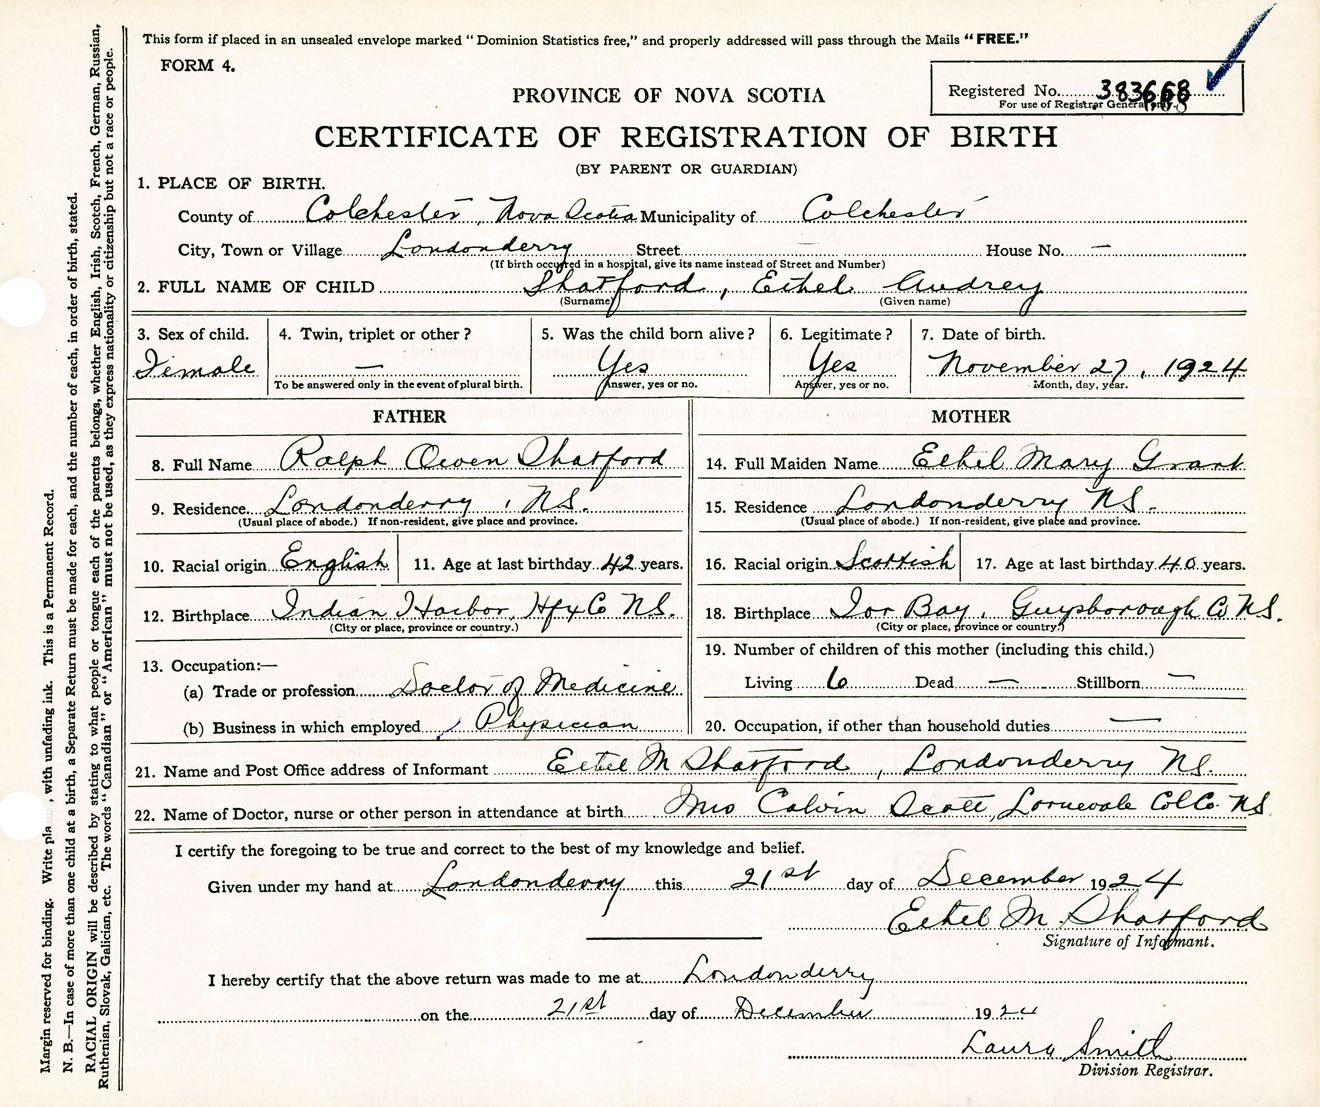 This form if placed in an unsealed envelope marked "Dominion Statistics free," and properly addressed will pass through the Mails "FREE."
FORM 4.
Registered No. 383668
For use of Registrar General only.
PROVINCE OF NOVA SCOTIA
CERTIFICATE OF REGISTRATION OF BIRTH
(BY PARENT OR GUARDIAN)
1. PLACE OF BIRTH.
County of Colchester, Nova Scotia Municipality of Colchester
City, Town or Village Londonderry Street — House No. —
(If birth occurred in a hospital, give its name instead of Street and Number)
2. FULL NAME OF CHILD Shatford, Ethel Audrey
(Surname) (Given name)
3. Sex of child. 4. Twin, triplet or other? 5. Was the child born alive? 6. Legitimate? 7. Date of birth.
Female — Yes Yes November 27, 1924
To be answered only in the event of plural birth. Answer, yes or no. Answer, yes or no. Month, day, year.
FATHER
8. Full Name Ralph Owen Shatford
9. Residence Londonderry, NS.
(Usual place of abode.) If non-resident, give place and province.
10. Racial origin English 11. Age at last birthday 42 years.
12. Birthplace Indian Harbor, Hfx Co NS.
(City or place, province or country.)
13. Occupation:—
(a) Trade or profession Doctor of Medicine
(b) Business in which employed Physician
MOTHER
14. Full Maiden Name Ethel Mary Grant
15. Residence Londonderry NS.
(Usual place of abode.) If non-resident, give place and province.
16. Racial origin Scottish 17. Age at last birthday 40 years.
18. Birthplace Tor Bay, Guysborough Co NS.
(City or place, province or country.)
19. Number of children of this mother (including this child.)
Living 6 Dead — Stillborn —
20. Occupation, if other than household duties —
21. Name and Post Office address of Informant Ethel M Shatford, Londonderry NS.
22. Name of Doctor, nurse or other person in attendance at birth Mrs Calvin Scott, Lornevale Col Co. NS
I certify the foregoing to be true and correct to the best of my knowledge and belief.
Given under my hand at Londonderry this 21st day of December 1924
Ethel M. Shatford
Signature of Informant.
I hereby certify that the above return was made to me at Londonderry
on the 21st day of December 1924
Laura Smith
Division Registrar.
Margin reserved for binding. Write , with unfading ink. This is a Permanent Record.
N. B.—In case of more than one child at a birth, a Separate Return must be made for each, and the number of each, in order of birth, stated.
RACIAL ORIGIN will be described by stating to what people or tongue each of the parents belongs, whether English, Irish, Scotch, French, German, Russian,
Ruthenian, Slovak, Galician, etc. The words "Canadian" or "American" must not be used, as they express nationality or citizenship but not a race or people.